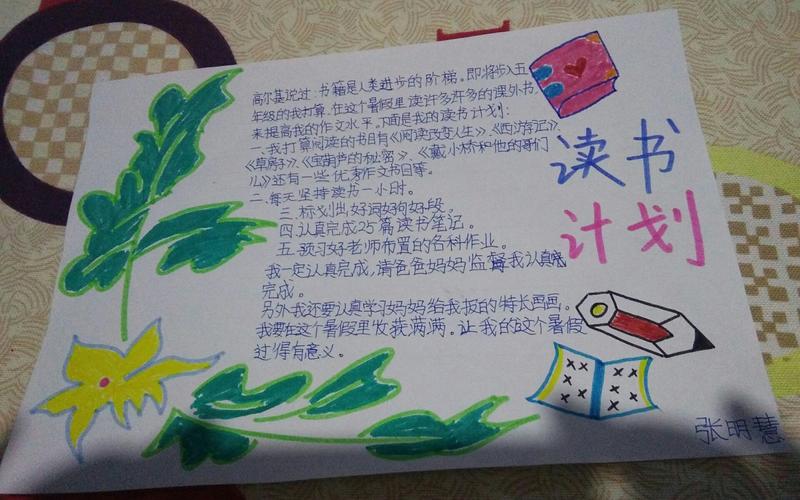 高尔基说过:书籍是人类进步的阶梯。即将步入五
年级的我打算,在这个暑假里读许多许多的课外书,
来提高我的作文水平。下面是我的读书计划:
一、我打算阅读的书目有《阅读改变人生》、《西游记》、
《草房子》、《宝葫芦的秘密》、《戴小桥和他的哥们
儿》还有一些优秀作文书目等。
二、每天坚持读书一小时。
三、标划出好词好句好段。
四、认真完成25篇读书笔记。
五、预习好老师布置的各科作业。
我一定认真完成,请爸爸妈妈监督我认真
完成。
另外我还要认真学习妈妈给我报的特长画画。
我要在这个暑假里收获满满。让我的这个暑假
过得有意义。
读书
计划
张明慧